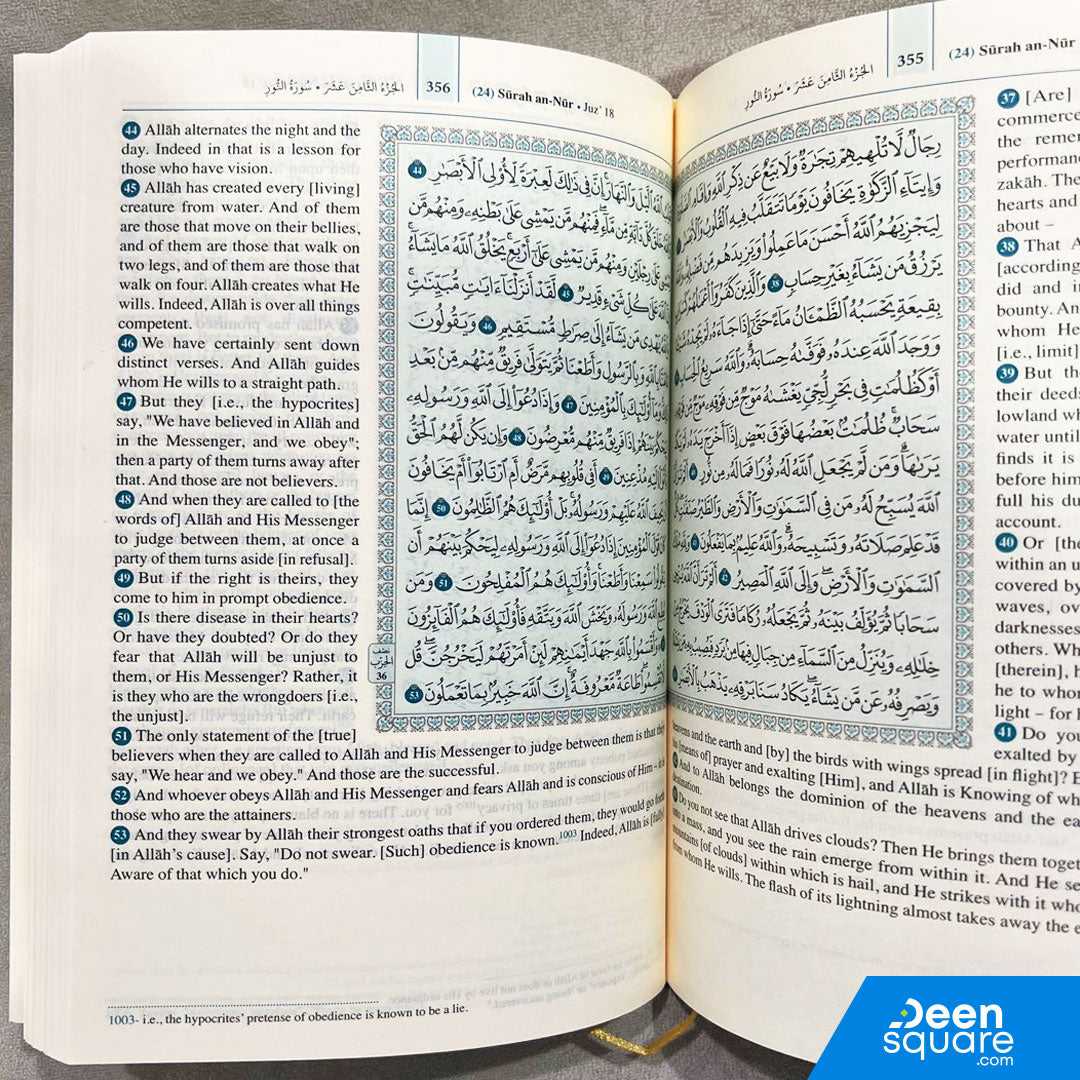 355 (24) Sūrah an-Nūr
الجُزْءُ الثَّامِنَ عَشَرَ • سُورَةُ النُّورِ
رِجَالٌ لَّا تُلْهِيهِمْ تِجَٰرَةٌ وَلَا بَيْعٌ عَن ذِكْرِ ٱللَّهِ وَإِقَامِ
وَإِيتَآءِ ٱلزَّكَوٰةِ يَخَافُونَ يَوْمًا تَتَقَلَّبُ فِيهِ ٱلْقُلُوبُ
لِيَجْزِيَهُمُ ٱللَّهُ أَحْسَنَ مَا عَمِلُوا۟ وَيَزِيدَهُم مِّن
يَرْزُقُ مَن يَشَآءُ بِغَيْرِ حِسَابٍ 38 وَٱلَّذِينَ كَفَرُوٓا۟ أَعْمَٰلُهُمْ
بِقِيعَةٍ يَحْسَبُهُ ٱلظَّمْـَٔانُ مَآءً حَتَّىٰٓ إِذَا جَآءَهُۥ لَمْ
وَوَجَدَ ٱللَّهَ عِندَهُۥ فَوَفَّىٰهُ حِسَابَهُۥ وَٱللَّهُ سَرِيعُ ٱلْحِسَابِ
أَوْ كَظُلُمَٰتٍ فِى بَحْرٍ لُّجِّىٍّ يَغْشَىٰهُ مَوْجٌ مِّن فَوْقِهِۦ مَوْجٌ
سَحَابٌ ظُلُمَٰتٌۢ بَعْضُهَا فَوْقَ بَعْضٍ إِذَآ أَخْرَجَ يَدَهُۥ
يَرَىٰهَا وَمَن لَّمْ يَجْعَلِ ٱللَّهُ لَهُۥ نُورًا فَمَا لَهُۥ مِن نُّورٍ
ٱللَّهَ يُسَبِّحُ لَهُۥ مَن فِى ٱلسَّمَٰوَٰتِ وَٱلْأَرْضِ وَٱلطَّيْرُ
قَدْ عَلِمَ صَلَاتَهُۥ وَتَسْبِيحَهُۥ وَٱللَّهُ عَلِيمٌۢ بِمَا يَفْعَلُونَ
ٱلسَّمَٰوَٰتِ وَٱلْأَرْضِ وَإِلَى ٱللَّهِ ٱلْمَصِيرُ 42 أَلَمْ تَرَ أَنَّ ٱللَّهَ
سَحَابًا ثُمَّ يُؤَلِّفُ بَيْنَهُۥ ثُمَّ يَجْعَلُهُۥ رُكَامًا فَتَرَى ٱلْوَدْقَ يَخْرُجُ
خِلَٰلِهِۦ وَيُنَزِّلُ مِنَ ٱلسَّمَآءِ مِن جِبَالٍ فِيهَا مِنۢ بَرَدٍ فَيُصِيبُ
وَيَصْرِفُهُۥ عَن مَّن يَشَآءُ يَكَادُ سَنَا بَرْقِهِۦ يَذْهَبُ
37 [Are]
commerce
the
performance
zakāh. The
hearts and
about –
38 That
[according
did and
bounty.
whom He
[i.e., limit]
39 But
their deeds
lowland
water until
finds it is
before him
full his
account.
40 Or
within an
covered by
waves,
darknesses
others.
[therein],
he to whom
light – for
41 Do you
exalted by
heavens and the earth and [by] the birds with wings spread [in flight]?
[means of] prayer and exalting [Him], and Allāh is Knowing of
And to Allāh belongs the dominion of the heavens and the
destination.
Do you not see that Allāh drives clouds? Then He brings them
into a mass, and you see the rain emerge from within it. And He
mountains [of clouds] within which is hail, and He strikes with it
from whom He wills. The flash of its lightning almost takes away the
الجُزْءُ الثَّامِنَ عَشَرَ • سُورَةُ النُّورِ 356 (24) Sūrah an-Nūr • Juz' 18
ٱللَّهُ ٱلَّيْلَ وَٱلنَّهَارَ إِنَّ فِى ذَٰلِكَ لَعِبْرَةً لِّأُو۟لِى ٱلْأَبْصَٰرِ 44
كُلَّ دَآبَّةٍ مِّن مَّآءٍ فَمِنْهُم مَّن يَمْشِى عَلَىٰ بَطْنِهِۦ وَمِنْهُم مَّن
عَلَىٰ رِجْلَيْنِ وَمِنْهُم مَّن يَمْشِى عَلَىٰٓ أَرْبَعٍ يَخْلُقُ ٱللَّهُ مَا يَشَآءُ
ٱللَّهَ عَلَىٰ كُلِّ شَىْءٍ قَدِيرٌ 45 لَّقَدْ أَنزَلْنَآ ءَايَٰتٍ مُّبَيِّنَٰتٍ
يَهْدِى مَن يَشَآءُ إِلَىٰ صِرَٰطٍ مُّسْتَقِيمٍ 46 وَيَقُولُونَ
بِٱللَّهِ وَبِٱلرَّسُولِ وَأَطَعْنَا ثُمَّ يَتَوَلَّىٰ فَرِيقٌ مِّنْهُم مِّنۢ بَعْدِ
وَمَآ أُو۟لَٰٓئِكَ بِٱلْمُؤْمِنِينَ 47 وَإِذَا دُعُوٓا۟ إِلَى ٱللَّهِ وَرَسُولِهِۦ
بَيْنَهُمْ إِذَا فَرِيقٌ مِّنْهُم مُّعْرِضُونَ 48 وَإِن يَكُن لَّهُمُ ٱلْحَقُّ
إِلَيْهِ مُذْعِنِينَ 49 أَفِى قُلُوبِهِم مَّرَضٌ أَمِ ٱرْتَابُوٓا۟ أَمْ يَخَافُونَ
يَحِيفَ ٱللَّهُ عَلَيْهِمْ وَرَسُولُهُۥ بَلْ أُو۟لَٰٓئِكَ هُمُ ٱلظَّٰلِمُونَ 50 إِنَّمَا
قَوْلَ ٱلْمُؤْمِنِينَ إِذَا دُعُوٓا۟ إِلَى ٱللَّهِ وَرَسُولِهِۦ لِيَحْكُمَ بَيْنَهُمْ أَن
سَمِعْنَا وَأَطَعْنَا وَأُو۟لَٰٓئِكَ هُمُ ٱلْمُفْلِحُونَ 51 وَمَن
ٱللَّهَ وَرَسُولَهُۥ وَيَخْشَ ٱللَّهَ وَيَتَّقْهِ فَأُو۟لَٰٓئِكَ هُمُ ٱلْفَآئِزُونَ
وَأَقْسَمُوا۟ بِٱللَّهِ جَهْدَ أَيْمَٰنِهِمْ لَئِنْ أَمَرْتَهُمْ لَيَخْرُجُنَّ قُل
تُقْسِمُوا۟ طَاعَةٌ مَّعْرُوفَةٌ إِنَّ ٱللَّهَ خَبِيرٌۢ بِمَا تَعْمَلُونَ 53
نصف
الحزب
36
44 Allāh alternates the night and the
day. Indeed in that is a lesson for
those who have vision.
45 Allāh has created every [living]
creature from water. And of them
are those that move on their bellies,
and of them are those that walk on
two legs, and of them are those that
walk on four. Allāh creates what He
wills. Indeed, Allāh is over all things
competent.
46 We have certainly sent down
distinct verses. And Allāh guides
whom He wills to a straight path.
47 But they [i.e., the hypocrites]
say, "We have believed in Allāh and
in the Messenger, and we obey";
then a party of them turns away after
that. And those are not believers.
48 And when they are called to [the
words of] Allāh and His Messenger
to judge between them, at once a
party of them turns aside [in refusal].
49 But if the right is theirs, they
come to him in prompt obedience.
50 Is there disease in their hearts?
Or have they doubted? Or do they
fear that Allāh will be unjust to
them, or His Messenger? Rather, it
is they who are the wrongdoers [i.e.,
the unjust].
51 The only statement of the [true]
believers when they are called to Allāh and His Messenger to judge between them is that they
say, "We hear and we obey." And those are the successful.
52 And whoever obeys Allāh and His Messenger and fears Allāh and is conscious of Him – it is
those who are the attainers.
53 And they swear by Allāh their strongest oaths that if you ordered them, they would go forth
[in Allāh's cause]. Say, "Do not swear. [Such] obedience is known.1003 Indeed, Allāh is [fully]
Aware of that which you do."
1003- i.e., the hypocrites' pretense of obedience is known to be a lie.
Deen
square
.com